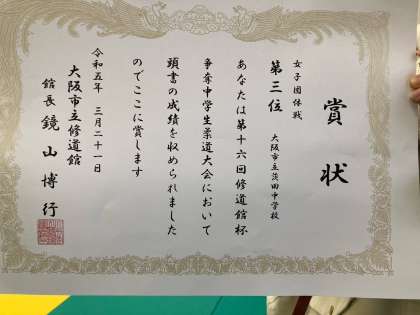 賞状
女子団体戦
第三位
大阪市立茨田中学校
あなたは第十六回修道館杯
争奪中学生柔道大会において
頭書の成績を収められました
のでここに賞します
令和五年 三月二十一日
大阪市立修道館
館長 鏡山博行